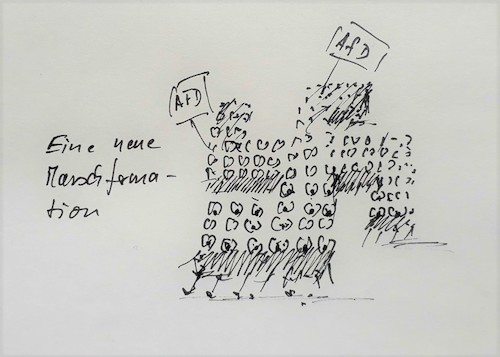 AfD
AFD
Eine neue
Marschforma-
tion